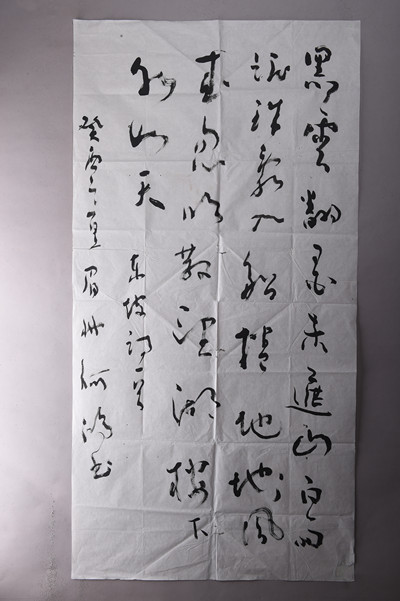 黑雲翻墨未遮山白雨
跳珠亂入船捲地地風
來忽吹散望湖樓下
水如天
東坡詩一首
癸酉 眉州 書